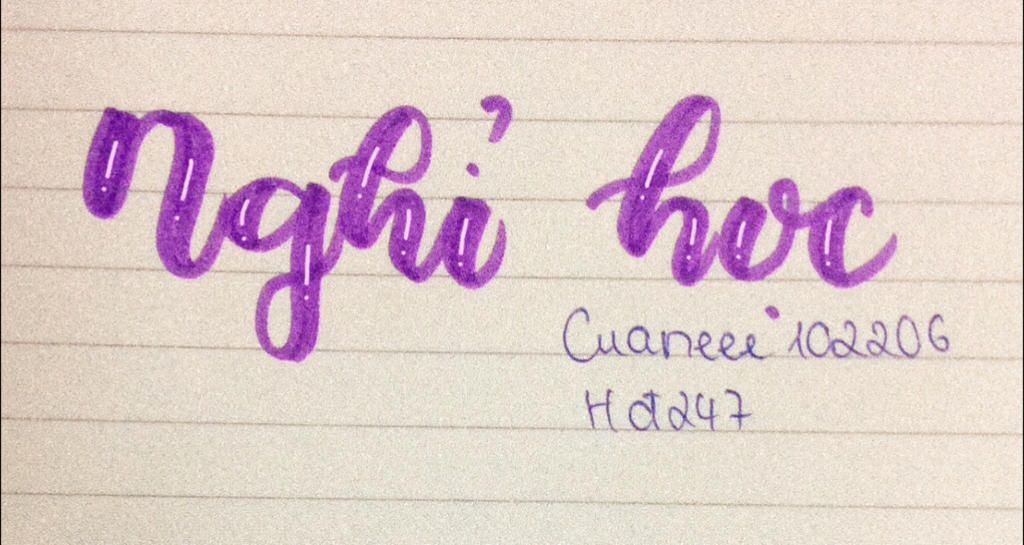 Nghỉ học
Cuaneee 102206
Hđ247